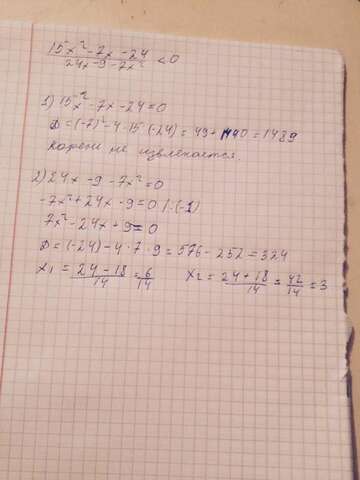 15x² - 7x - 24 / 24x - 9 - 7x² < 0
1) 15x² - 7x - 24 = 0
D = (-7)² - 4 · 15 · (-24) = 49 + 1440 = 1489
корень не извлекается.
2) 24x - 9 - 7x² = 0
-7x² + 24x - 9 = 0 | · (-1)
7x² - 24x + 9 = 0
D = (-24) - 4 · 7 · 9 = 576 - 252 = 324
x₁ = 24 - 18 / 14 = 6 / 14 x₂ = 24 + 18 / 14 = 42 / 14 = 3